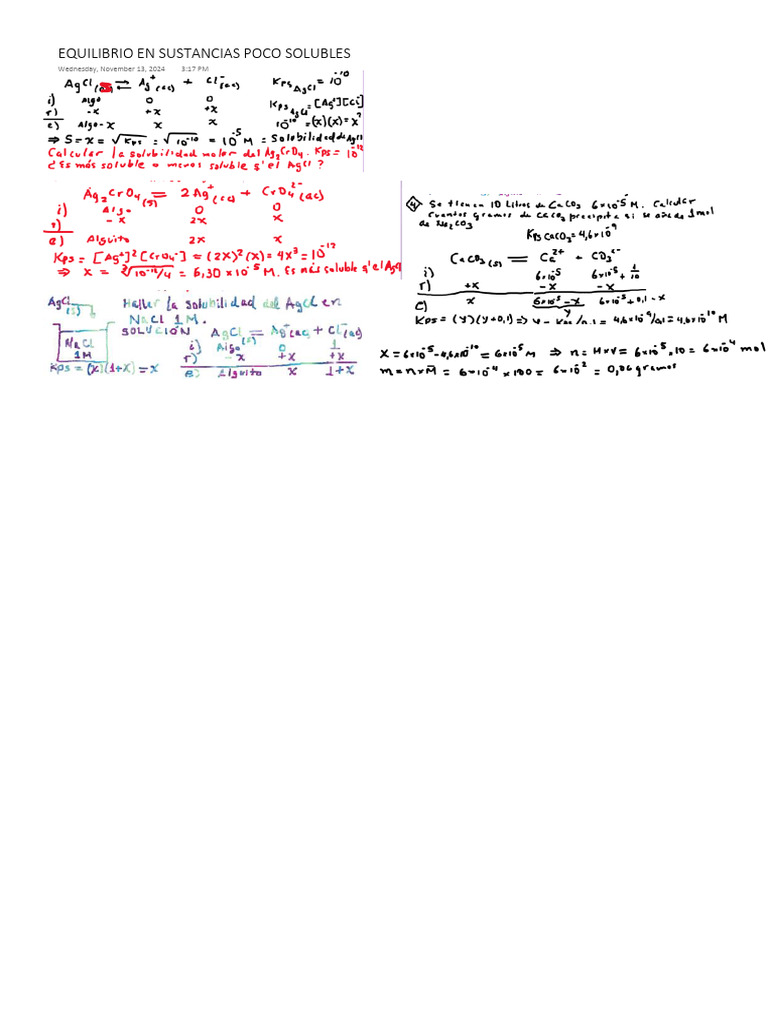 EQUILIBRIO EN SUSTANCIAS POCO SOLUBLES
Wednesday, November 13, 2024 3:17 PM
AgCl ⇌ Ag⁺(ac) + Cl⁻(ac) Kps AgCl = 10⁻¹⁰
i) Algo 0 0 Kps AgCl = [Ag⁺][Cl⁻]
r) -x +x +x
e) Algo-x x x 10⁻¹⁰ = (x)(x) = x²
⇒ S = x = √Kps = √10⁻¹⁰ = 10⁻⁵ M = Solubilidad de AgCl
Calcular la solubilidad molar del Ag₂CrO₄. Kps = 10⁻¹²
¿Es más soluble o menos soluble q' el AgCl?
Ag₂CrO₄(s) = 2Ag⁺(ac) + CrO₄²⁻(ac)
i) Algo 0 0
r) -x 2x x
e) Alguito 2x x
Kps = [Ag⁺]²[CrO₄²⁻] = (2x)²(x) = 4x³ = 10⁻¹²
⇒ x = ³√10⁻¹²/4 = 6,30 x 10⁻⁵ M. Es más soluble q' el AgCl
AgCl(s) Hallar la solubilidad del AgCl en
NaCl 1M.
SOLUCIÓN AgCl(s) = Ag⁺(ac) + Cl⁻(ac)
NaCl 1M
i) Algo 0 1
r) -x +x +x
Kps = (x)(1+x) = x e) Alguito x 1+x
4 Se tienen 10 Litros de CaCO₃ 6x10⁻⁵ M. Calcular
cuantos gramos de CaCO₃ precipita si se añade 1 mol
de Na₂CO₃
Kps CaCO₃ = 4,6x10⁻⁹
CaCO₃(s) = Ca²⁺ + CO₃²⁻
i) 6x10⁻⁵ 6x10⁻⁵ + 1/10
r) +x -x -x
e) x 6x10⁻⁵-x 6x10⁻⁵+0,1-x
y
Kps = (y)(y+0,1) ⇒ y = Kps/0,1 = 4,6x10⁻⁹/0,1 = 4,6x10⁻¹⁰ M
x = 6x10⁻⁵ - 4,6x10⁻¹⁰ = 6x10⁻⁵ M ⇒ n = MxV = 6x10⁻⁵.10 = 6x10⁻⁴ mol
m = nxM = 6x10⁻⁴ x 100 = 6x10⁻² = 0,06 gramos